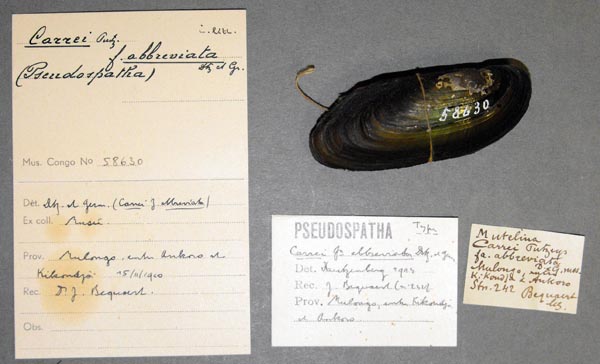 Carrei Putz.
f. abbreviata
(Pseudospatha) Dtz et Gr.
Mus. Congo No 58630
Dét. Dtz. et Germ. (Carrei f. abbreviata)
Ex coll. Musée
Prov. Mulongo, entre Ankoro et
Kikondja 15/11/1910
Rec. Dr. J. Bequaert.
Obs.
58630
PSEUDOSPATHA Type
Carrei f. abbreviata Dtz. et Germ.
Det. Dautzenberg
Rec. J. Bequaert
Prov. Mulongo, entre Kikondja
et Ankoro
Mutelina
Carrei Putzeys
fa. abbreviata
D. & G. mss.
Mulongo, entre
Kikondja & Ankoro
Stn. 242 Bequaert
leg.